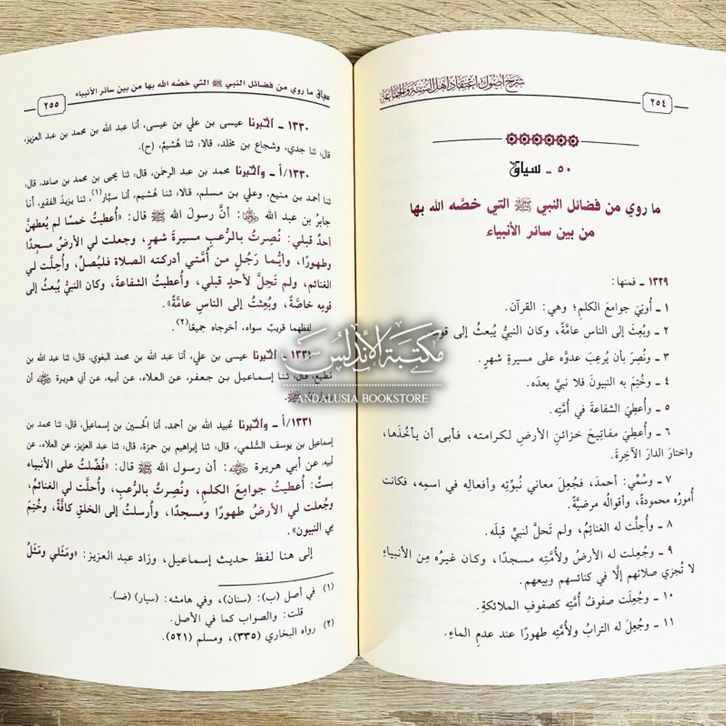 شرح أصول اعتقاد أهل السنة والجماعة
٢٥٤
٥٠ ـ سياق
ما روي من فضائل النبي ﷺ التي خصَّه الله بها
من بين سائر الأنبياء
١٣٢٩ ـ فمنها:
١ ـ أُوتيَ جوامعَ الكلمِ؛ وهي: القرآن.
٢ ـ وبُعِثَ إلى الناس عامَّةً، وكان النبيُّ يُبعثُ إلى قومه
٣ ـ ونُصِرَ بأن يُرعِبَ عدوَّه على مسيرةِ شهرٍ.
٤ ـ وخُتِمَ به النبيون فلا نبيَّ بعدَه.
٥ ـ وأُعطِيَ الشفاعةَ في أُمَّتِه.
٦ ـ وأُعطِيَ مفاتيحَ خزائنِ الأرضِ لكرامتِه، فأبى أن يأخُذَها،
واختارَ الدارَ الآخِرةَ.
٧ ـ وسُمِّيَ: أحمدَ، فجُعِلَ معاني نُبوَّتِه وأفعالِه في اسمِه، فكانت
أُمورُه محمودةً، وأقوالُه مرضيَّةً.
٨ ـ وأُحِلَّت له الغنائِمُ، ولم تَحلَّ لنبيٍّ قبلَه.
٩ ـ وجُعِلت له الأرضُ ولأُمَّتِه مسجدًا، وكان غيرُه مِن الأنبياءِ
لا تُجزي صلاتهم إلَّا في كنائسهم وبيعهم.
١٠ ـ وجُعِلَت صفوفُ أُمَّتِه كصفوفِ الملائكةِ.
١١ ـ وجُعِلَ له الترابُ ولأُمَّتِه طهورًا عند عدمِ الماءِ.
سياق ما روي من فضائل النبي ﷺ التي خصَّه الله بها من بين سائر الأنبياء
٢٥٥
١٣٣٠ ـ أخبرنا عيسى بن علي بن عيسى، أنا عبد الله بن محمد بن عبد العزيز،
قال: ثنا جدي، وشجاع بن مخلد، قالا: ثنا هُشيمٌ. (ح).
١٣٣٠/أ ـ وأخبرنا محمد بن عبد الرحمٰن، قال: ثنا يحيى بن محمد بن صاعد، قال:
ثنا أحمد بن منيع، وعلي بن مسلم، قالا: ثنا هُشيم، أنا سيَّار(١)، ثنا يزيدُ الفقير، أنا
جابرُ بن عبد الله ﷺ: أنَّ رسولَ الله ﷺ قال: «أُعطيتُ خمسًا لم يُعطهنَّ
أحدٌ قبلي: نُصِرتُ بالرُّعبِ مسيرةَ شهرٍ، وجعلت لي الأرضُ مسجدًا
وطهورًا، وأيُّما رَجُلٍ من أُمَّتي أدركته الصلاة فليُصلِّ، وأُحِلَّت لي
الغنائم، ولم تَحِلَّ لأحدٍ قبلي، وأُعطيتُ الشفاعةَ، وكان النبيُّ يُبعثُ إلى
قومِه خاصَّةً، وبُعِثتُ إلى الناسِ عامَّةً».
لفظهما قريبٌ سواء، أخرجاه جميعًا(٢).
١٣٣١ ـ أخبرنا عيسى بن علي، أنا عبد الله بن محمد البغوي، قال: ثنا عبد الله بن
مُطيع، قال: ثنا إسماعيل بن جعفر، عن العلاء، عن أبيه، عن أبي هريرة أن
١٣٣١/أ ـ وأخبرنا عُبيد الله بن أحمد، أنا الحُسين بن إسماعيل، قال: ثنا محمد بن
إسماعيل بن يوسف السُّلمي، قال: ثنا إبراهيم بن حمزة، قال: ثنا عبد العزيز، عن العلاء، عن
أبيه، عن أبي هريرة: أن رسول الله ﷺ قال: «فُضِّلتُ على الأنبياءِ
بستٍّ: أُعطيتُ جوامعَ الكلمِ، ونُصِرتُ بالرُّعبِ، وأُحلَّت لي الغنائمُ،
وجُعلت لي الأرضُ طهورًا ومسجدًا، وأُرسلتُ إلى الخلقِ كافَّةً، وخُتِمَ
بي النبيون».
إلى هنا لفظ حديث إسماعيل، وزاد عبد العزيز: «ومَثَلي ومَثَلُ
(١) في أصل (ب): (سنان)، وفي هامشه: (سيار) (صَـ).
قلت: والصواب كما في الأصل.
(٢) رواه البخاري (٣٣٥)، ومسلم (٥٢١).
مكتبة الأندلس
ANDALUSIA BOOKSTORE